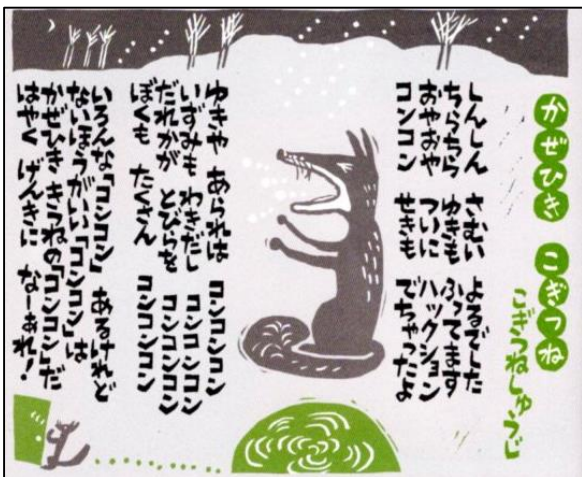 かぜひき こぎつね
こぎつねしゅうじ
しんしん さむい よるでした
ちらちら ゆきも ふってます
おやおや ついに ハックション
コンコン せきも でちゃったよ
ゆきや あられは コンコンコン
いずみも わきだし コンコンコン
だれかが とびらを コンコンコン
ぼくも たくさん コンコンコン
いろんな「コンコン」 あるけれど
ないほうがいい「コンコン」は
かぜひき きつねの「コンコン」だ
はやく げんきに なーあれ！